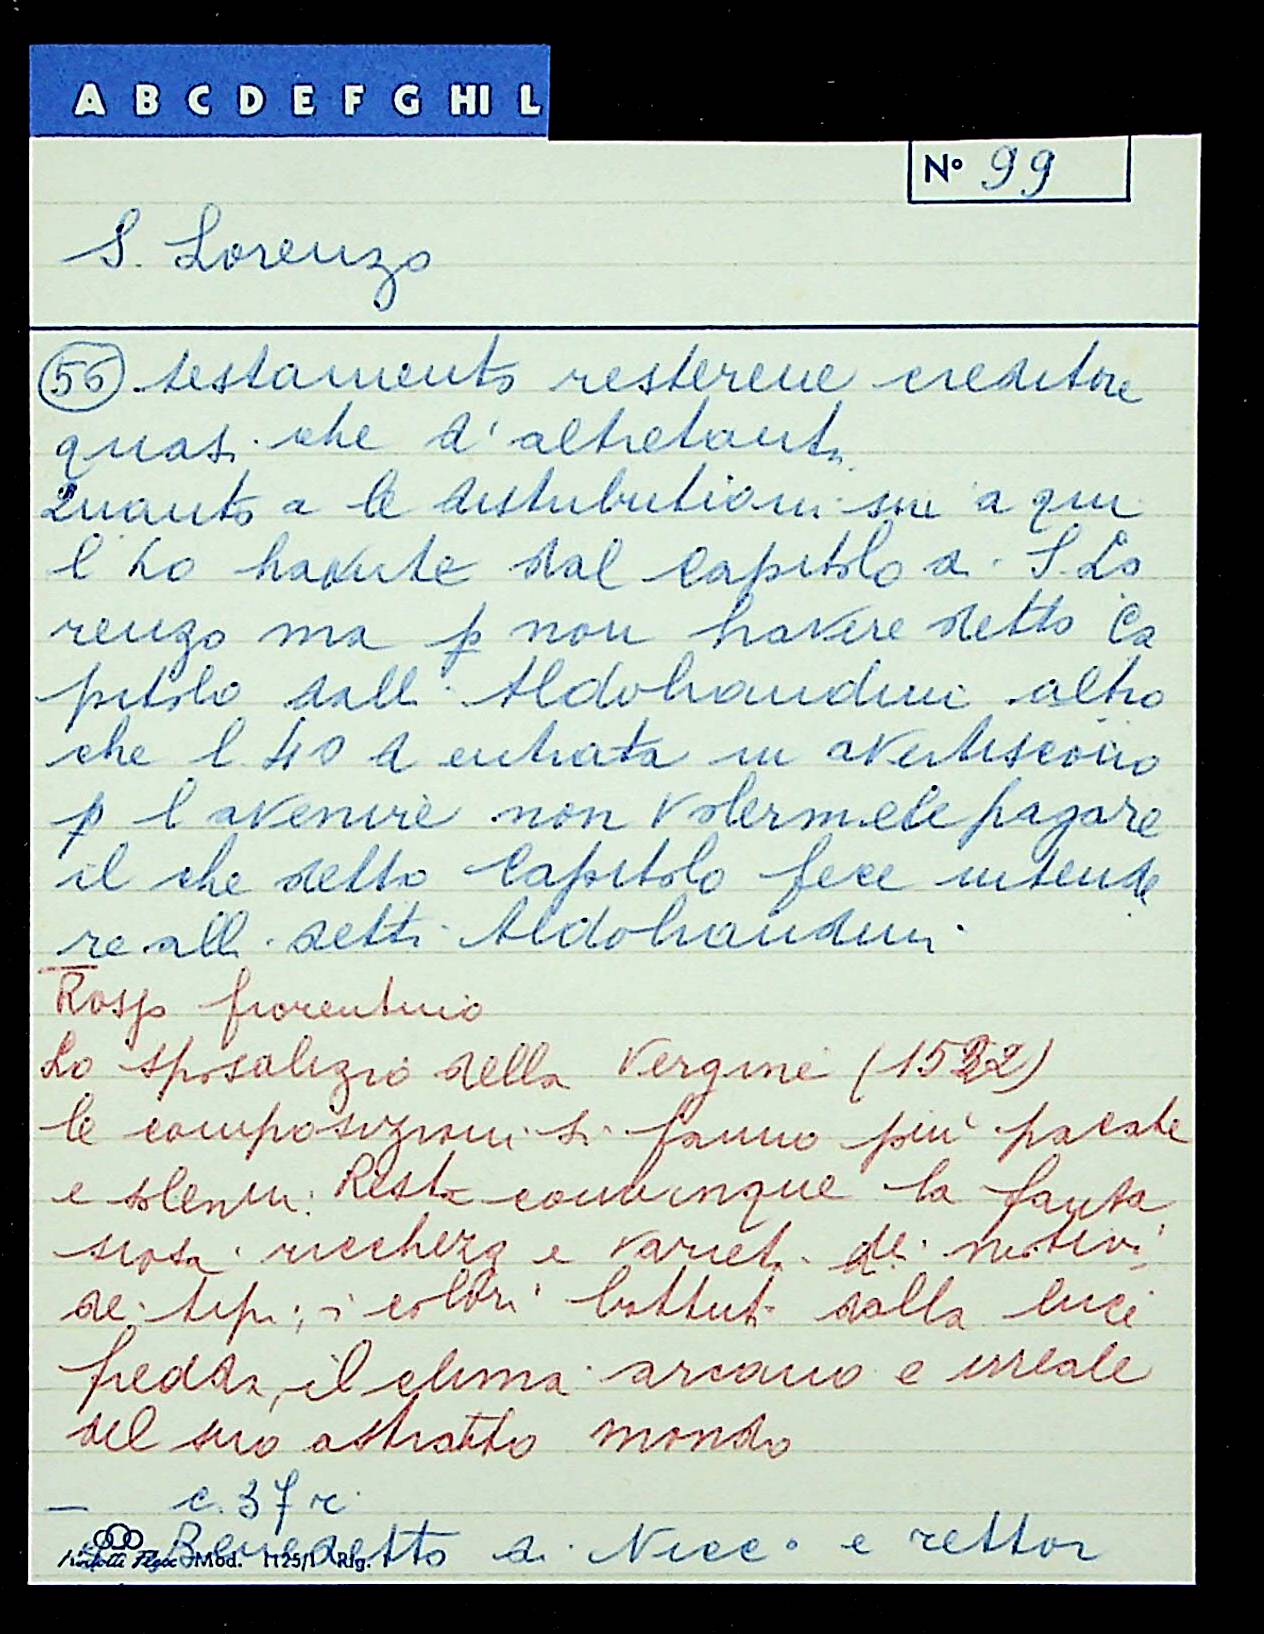 A B C D E F G HI L
N° 99
S. Lorenzo
56 testamento resterene creditore
quasi che d'altretanti
Quanto a le distributioni sin a qui
l ho havute dal Capitolo di S. Lo
renzo ma p non havere detto Ca
pitolo dalli Aldobrandini altro
che l 40 d entrata m avertiscono
p l avenire non volermele pagare
il che detto Capitolo fece intende
re alli detti Aldobrandini
Rosso fiorentino
Lo sposalizio della Vergine (1522)
le composizioni si fanno più pacate
e solenni. Resta comunque la fanta
siosa ricchezza e varietà di motivi
di tipi; i colori battuti dalla luce
fredda, il clima arcano e irreale
del suo astratto mondo
— c. 37 r
Benedetto di Nicc° e rettor
Mod. 1125/1 Rig. 1